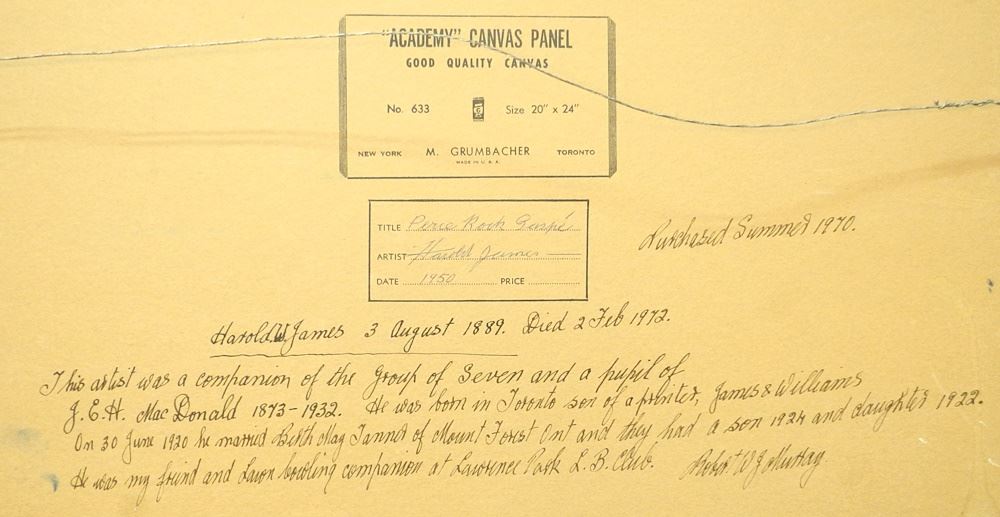 "ACADEMY" CANVAS PANEL
GOOD QUALITY CANVAS
No. 633 Size 20" x 24"
NEW YORK M. GRUMBACHER TORONTO
MADE IN U. S. A.
TITLE Perce Rock Gaspé
ARTIST Harold James
DATE 1950 PRICE
Purchased Summer 1970.
Harold W. James 3 August 1889. Died 2 Feb 1972.
This artist was a companion of the Group of Seven and a pupil of
J. E. H. MacDonald 1873-1932. He was born in Toronto son of a printer, James & Williams
On 30 June 1920 he married Beth May Tanner of Mount Forest Ont and they had a son 1924 and daughter 1922.
He was my friend and Lawn bowling companion at Lawrence Park L. B. Club. Robt W J Murray